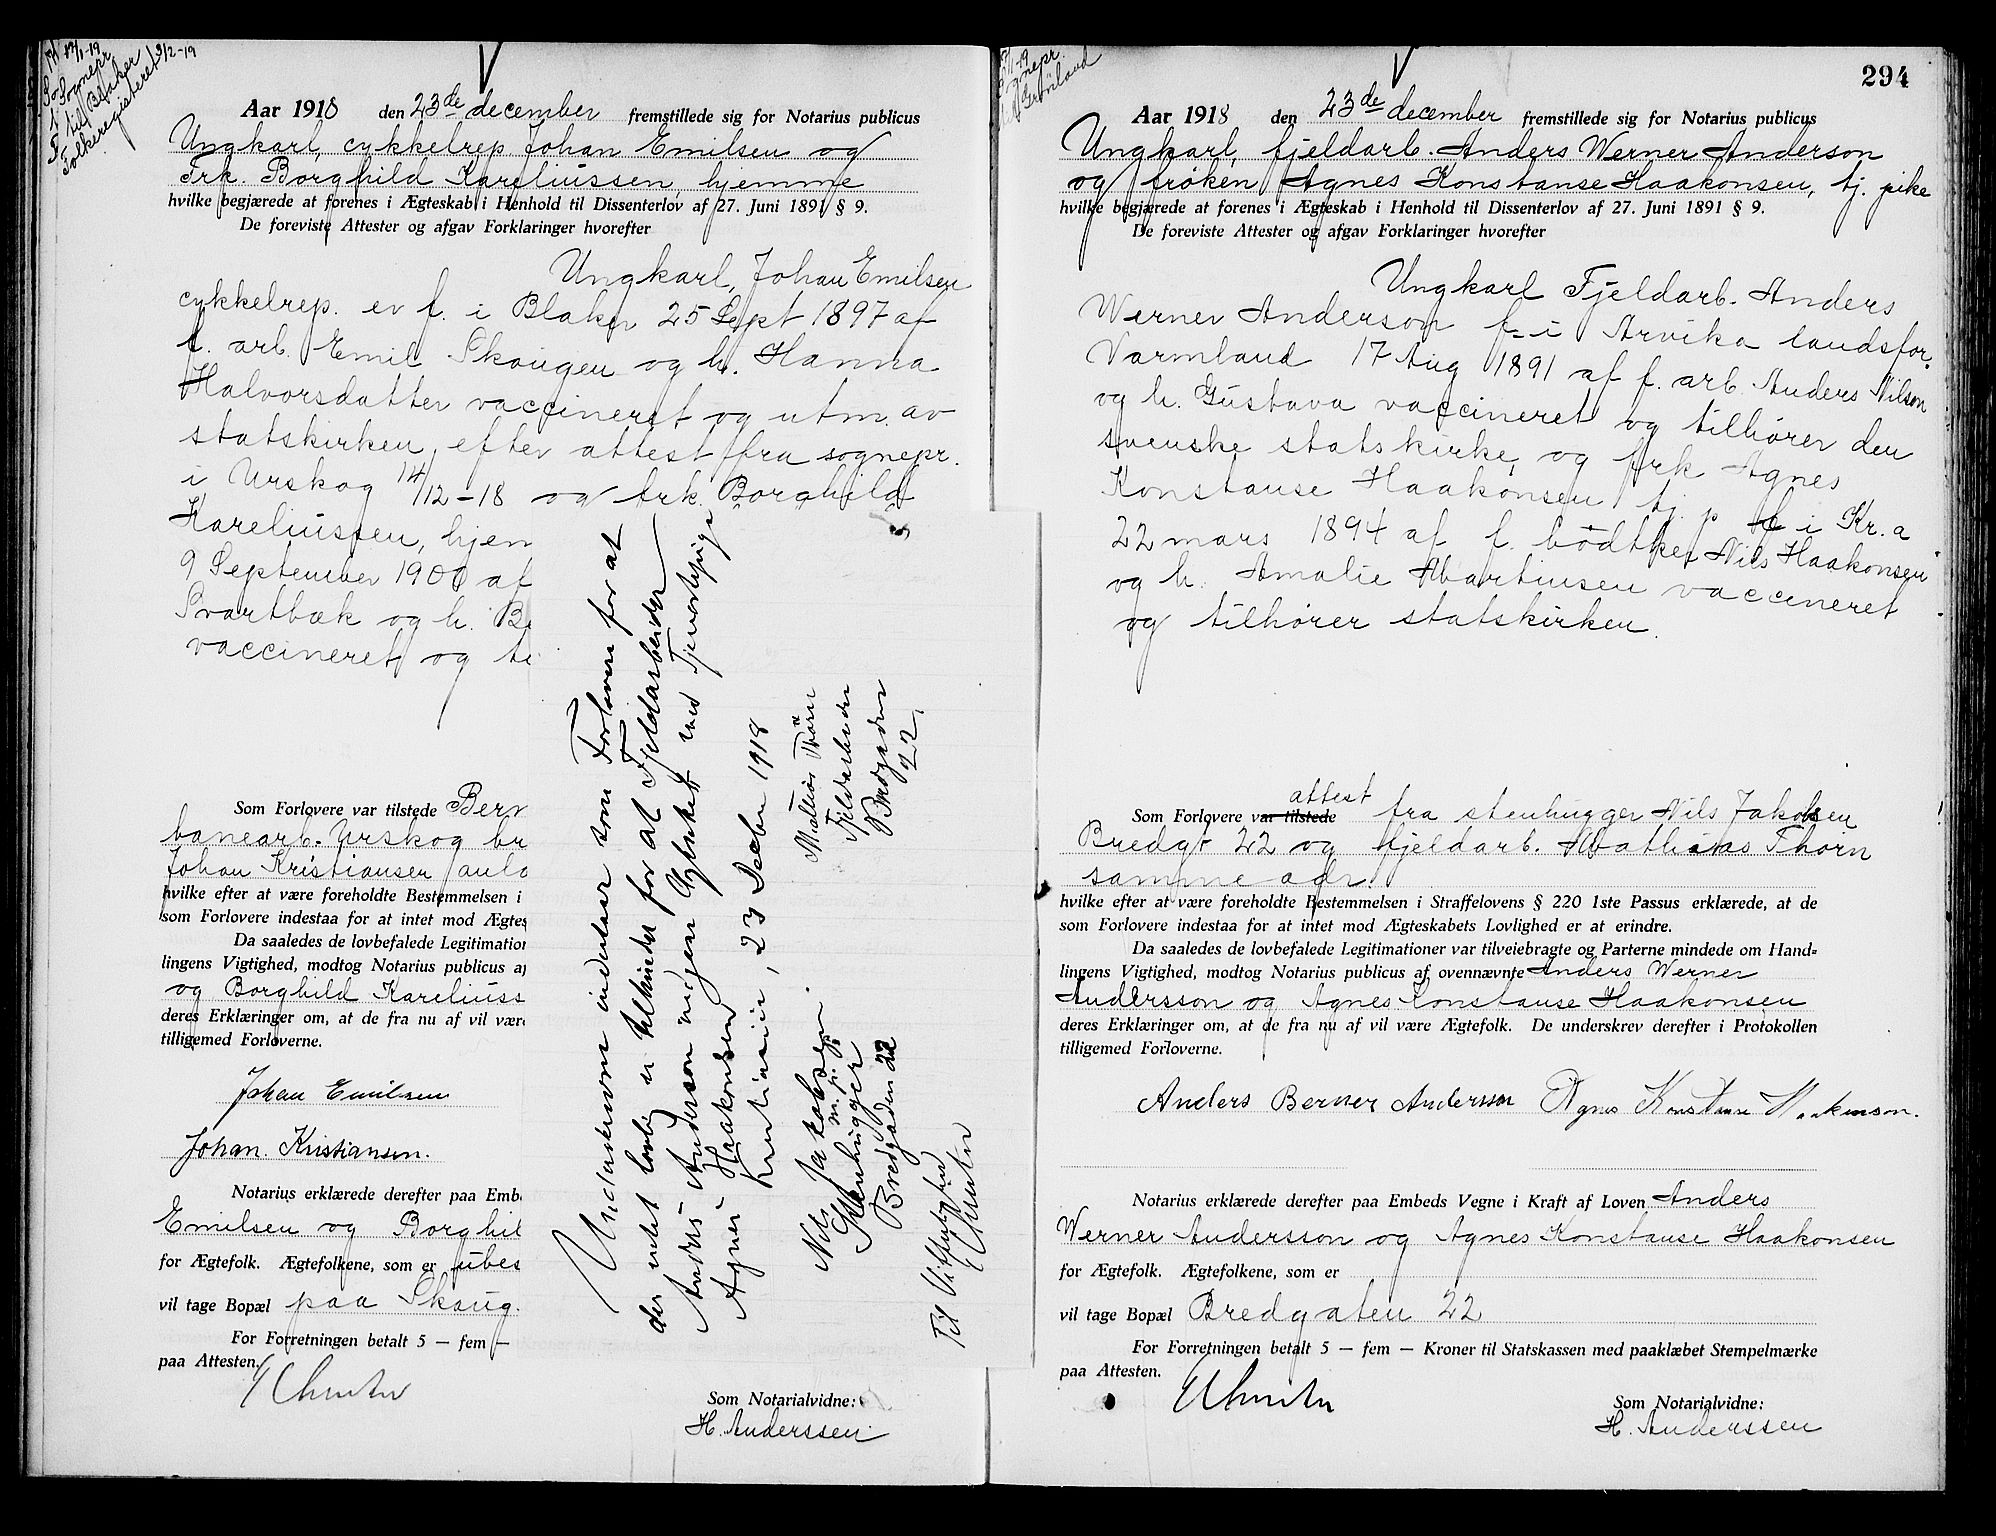 17/1-19
Sognepr
til Blaker
Folkeregisteret 3/2-19
Aar 1918 den 23de december fremstillede sig for Notarius publicus
Ungkarl, cykkelrep. Johan Emilsen og
Frk. Borghild Kareliussen, hjemme
hvilke begjærede at forenes i Ægteskab i Henhold til Dissenterlov af 27. Juni 1891 § 9.
De foreviste Attester og afgav Forklaringer hvorefter
Ungkarl, Johan Emilsen
cykkelrep. er f. i Blaker 25 Sept 1897 af
f. arb. Emil Skaugen og h. Hanna
Halvorsdatter vaccineret og utm. av
statskirken efter attest fra sognepr.
i Urskog 14/12-18 og frk. Borghild
Kareliussen, hjem
9 September 1900 af
Svartbæk og h. Be
vaccineret og ti
Som Forlovere var tilstede Bern
banearb. Urskog br
Johan Kristiansen anlæ
hvilke efter at være foreholdte Bestemmelsen i
som Forlovere indestaa for at intet mod Ægtes
Da saaledes de lovbefalede Legitimation
lingens Vigtighed, modtog Notarius publicus a
og Borghild Kareliuss
deres Erklæringer om, at de fra nu af vil være
tilligemed Forloverne.
Johan Emilsen
Johan. Kristiansen.
Notarius erklærede derefter paa Embe
Emilsen og Borghil
for Ægtefolk. Ægtefolkene, som er ubes
vil tage Bopæl paa Skaug.
For Forretningen betalt 5 — fem —
paa Attesten.
Som Notarialvidne:
H. Anderssen
Undaskrevne indestaar som Forlovere for at
der intet lovlig er tilhinder for at Fjeldarbeider
Anders Anderson indgaar Ægteskab med Tjenestepige
Agnes Haakonsen
Kristiania, 23 Decbr 1918
Nils Jakobsen m.p.p.
Stenhugger
Bredgaden 22
Mathias Thörn
Fjeldarbeider
Bredgaden
22.
Til Vitterlighed
294
Sognepr.
Grønland
Aar 1918 den 23de december fremstillede sig for Notarius publicus
Ungkarl, fjeldarb. Anders Werner Anderson
og frøken Agnes Konstanse Haakonsen, tj. pike
hvilke begjærede at forenes i Ægteskab i Henhold til Dissenterlov af 27. Juni 1891 § 9.
De foreviste Attester og afgav Forklaringer hvorefter
Ungkarl Fjeldarb. Anders
Werner Anderson f. i Arvika landsfor.
Varmland 17 Aug 1891 af f. arb. Anders Nilson
og h. Gustava vaccineret og tilhører den
svenske statskirke, og frk Agnes
Konstanse Haakonsen tj. p f. i Kr.a
22 mars 1894 af f. bødtker Nils Haakonsen
og h. Amalie Martinsen vaccineret
og tilhører statskirken.
attest
Som Forlovere var tilstede fra stenhugger Nils Jakobsen
Bredgt 22 og fjeldarb. Mathias Thörn
samme adr.
hvilke efter at være foreholdte Bestemmelsen i Straffelovens § 220 1ste Passus erklærede, at de
som Forlovere indestaa for at intet mod Ægteskabets Lovlighed er at erindre.
Da saaledes de lovbefalede Legitimationer var tilveiebragte og Parterne mindede om Hand-
lingens Vigtighed, modtog Notarius publicus af ovennævnte Anders Werner
Andersson og Agnes Konstanse Haakonsen
deres Erklæringer om, at de fra nu af vil være Ægtefolk. De underskrev derefter i Protokollen
tilligemed Forloverne.
Anders Berner Andersson Agnes Konstanse Haakonson.
Notarius erklærede derefter paa Embeds Vegne i Kraft af Loven Anders
Werner Andersson og Agnes Konstanse Haakonsen
for Ægtefolk. Ægtefolkene, som er
vil tage Bopæl Bredgaten 22
For Forretningen betalt 5 — fem — Kroner til Statskassen med paaklæbet Stempelmærke
paa Attesten.
Som Notarialvidne:
H. Anderssen